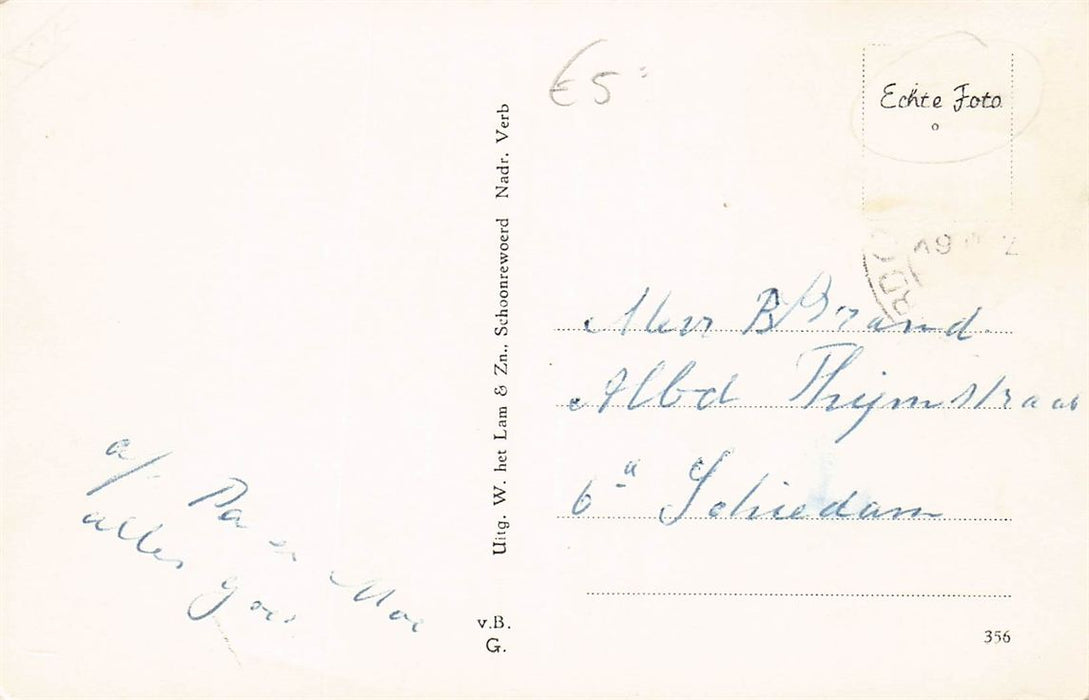 €5=
Echte Foto
Uitg. W. het Lam & Zn., Schoonrewoerd Nadr. Verb
19 2
Mevr B Brand
Albd Thijmstraat
6a Schiedam
a/ Pa en Moe
alles goed
v.B.
G.
356